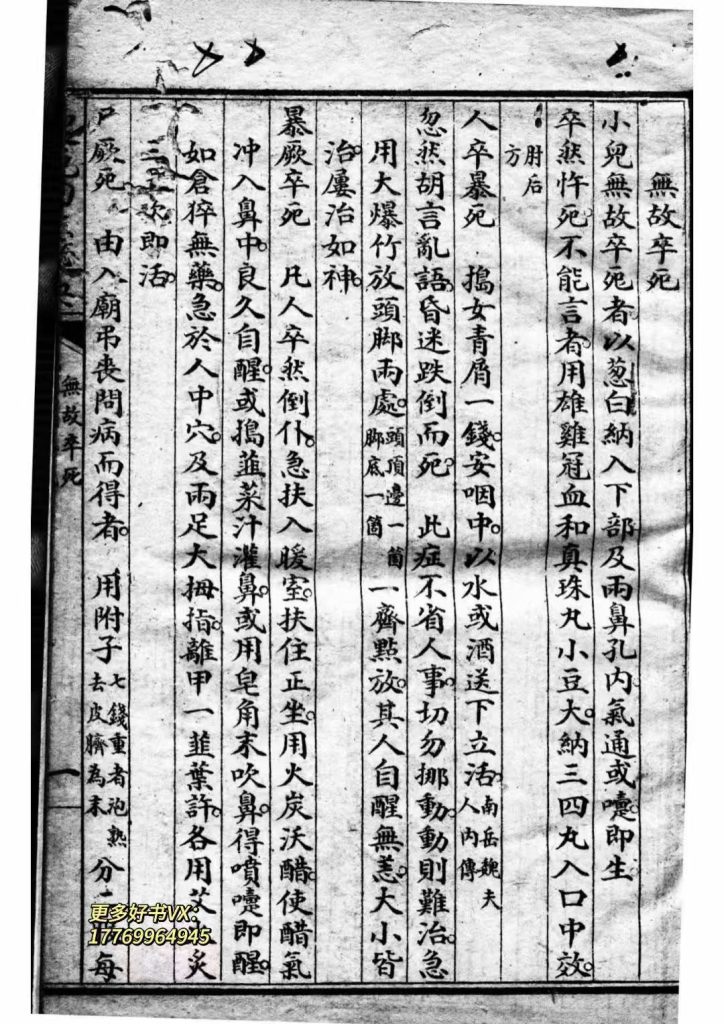 無故卒死
小兒無故卒死者以葱白納入下部及兩鼻孔内氣通或嚏即生
卒然忤死不能言者用雄雞冠血和真珠丸小豆大納三四丸入口中效
肘后方
人卒暴死 搗女青屑一錢安咽中以水或酒送下立活南岳魏夫人内傳
忽然胡言亂語昏迷跌倒而死 此症不省人事切勿挪動動則難治急
用大爆竹放頭脚兩處頭頂邊一箇脚底一箇一齊點放其人自醒無恙大小皆
治屢治如神
暴厥卒死 凡人卒然倒仆急扶入暖室扶住正坐用火炭沃醋使醋氣
冲入鼻中良久自醒或搗韮菜汁灌鼻或用皂角末吹鼻得噴嚏即醒
如倉猝無藥急於人中穴及兩足大拇指離甲一韮葉許各用艾炙
三五次即活
尸厥死 由入廟弔喪問病而得者 用附子七錢重者泡熟去皮臍為末分每
無故卒死
一
更多好书VX:
17769964945